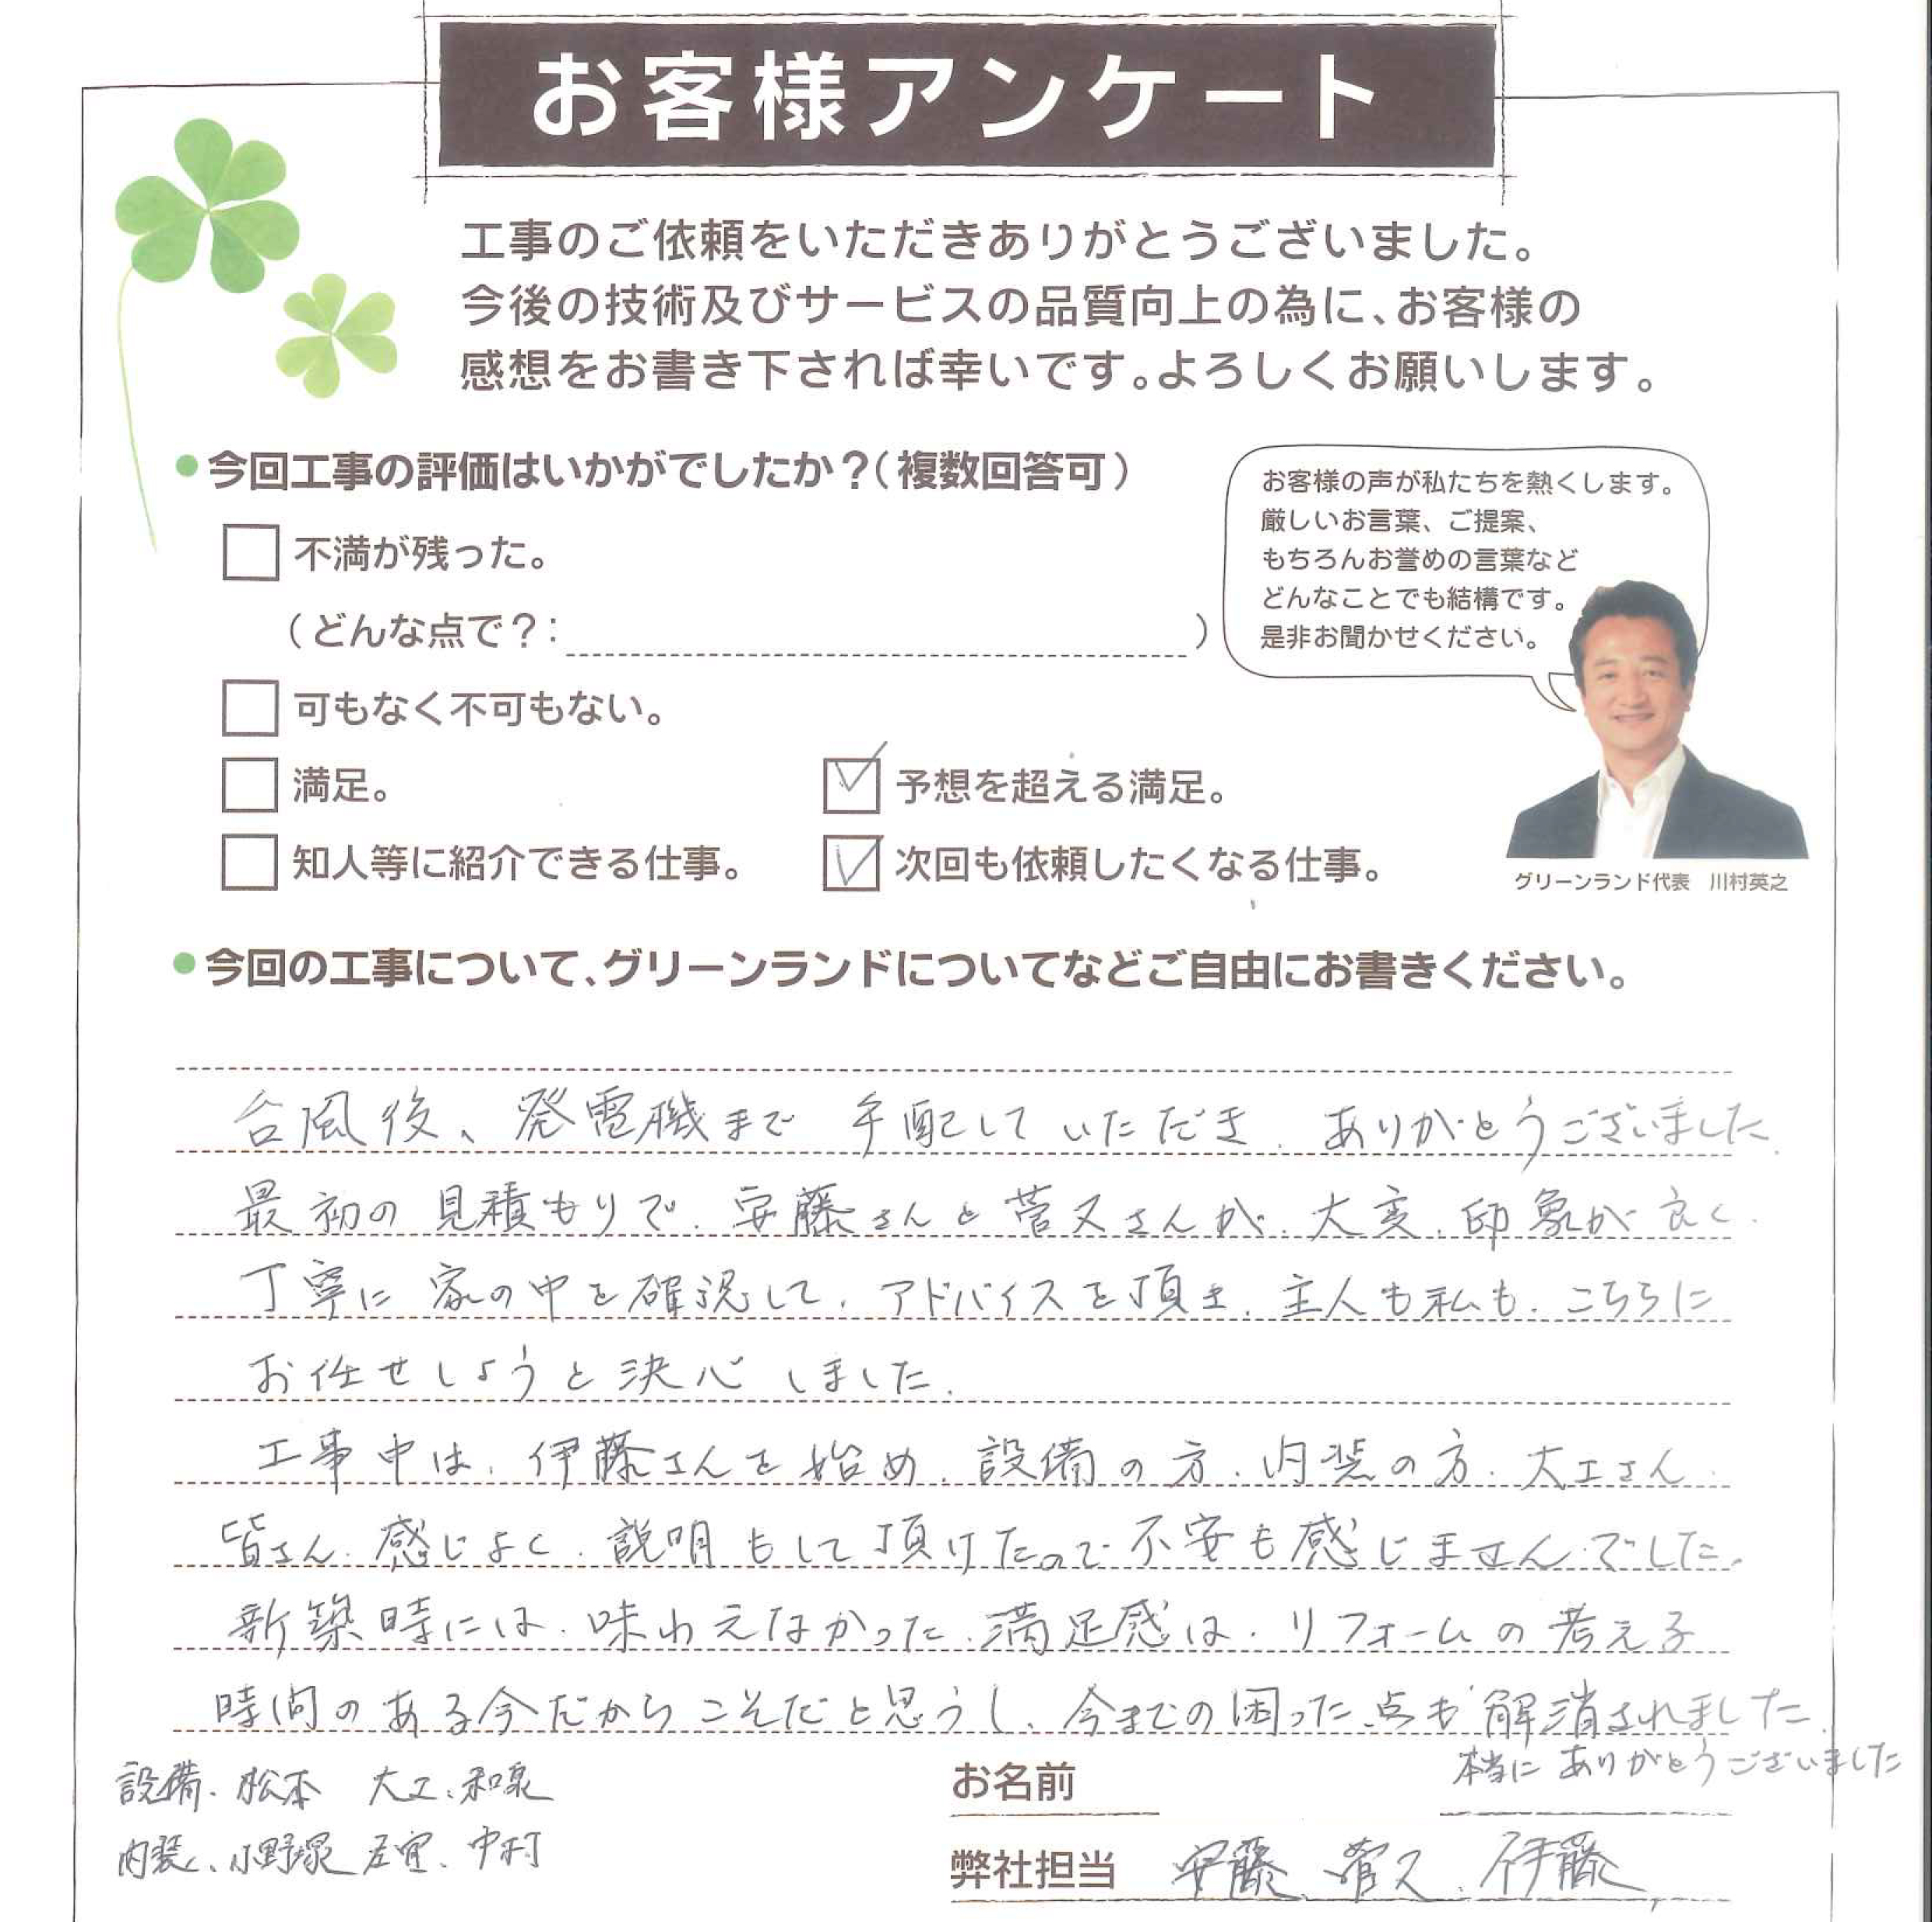 お客様アンケート
工事のご依頼をいただきありがとうございました。
今後の技術及びサービスの品質向上の為に、お客様の
感想をお書き下されば幸いです。よろしくお願いします。
●今回工事の評価はいかがでしたか？（複数回答可）
不満が残った。
（どんな点で？：　）
可もなく不可もない。
満足。
予想を超える満足。
知人等に紹介できる仕事。
次回も依頼したくなる仕事。
お客様の声が私たちを熱くします。
厳しいお言葉、ご提案、
もちろんお誉めの言葉など
どんなことでも結構です。
是非お聞かせください。
グリーンランド代表　川村英之
●今回の工事について、グリーンランドについてなどご自由にお書きください。
台風後、発電機まで 手配して いただき、ありがとうございました。
最初の見積もりで、安藤さんと菅又さんが、大変、印象が良く、
丁寧に 家の中を確認して、アドバイスを頂き、主人も私も、こちらに
お任せしようと決心 しました。
工事中は、伊藤さんを始め、設備の方、内装の方、大工さん、
皆さん、感じよく、説明もして頂けたので不安も感じませんでした。
新築時には、味わえなかった、満足感は、リフォームの考える
時間のある今だからこそだと思うし、今までの困った点も解消されました。
本当に ありがとうございました
設備、松本　大工、和泉
内装、小野塚　中村
お名前
弊社担当　安藤、菅又、伊藤